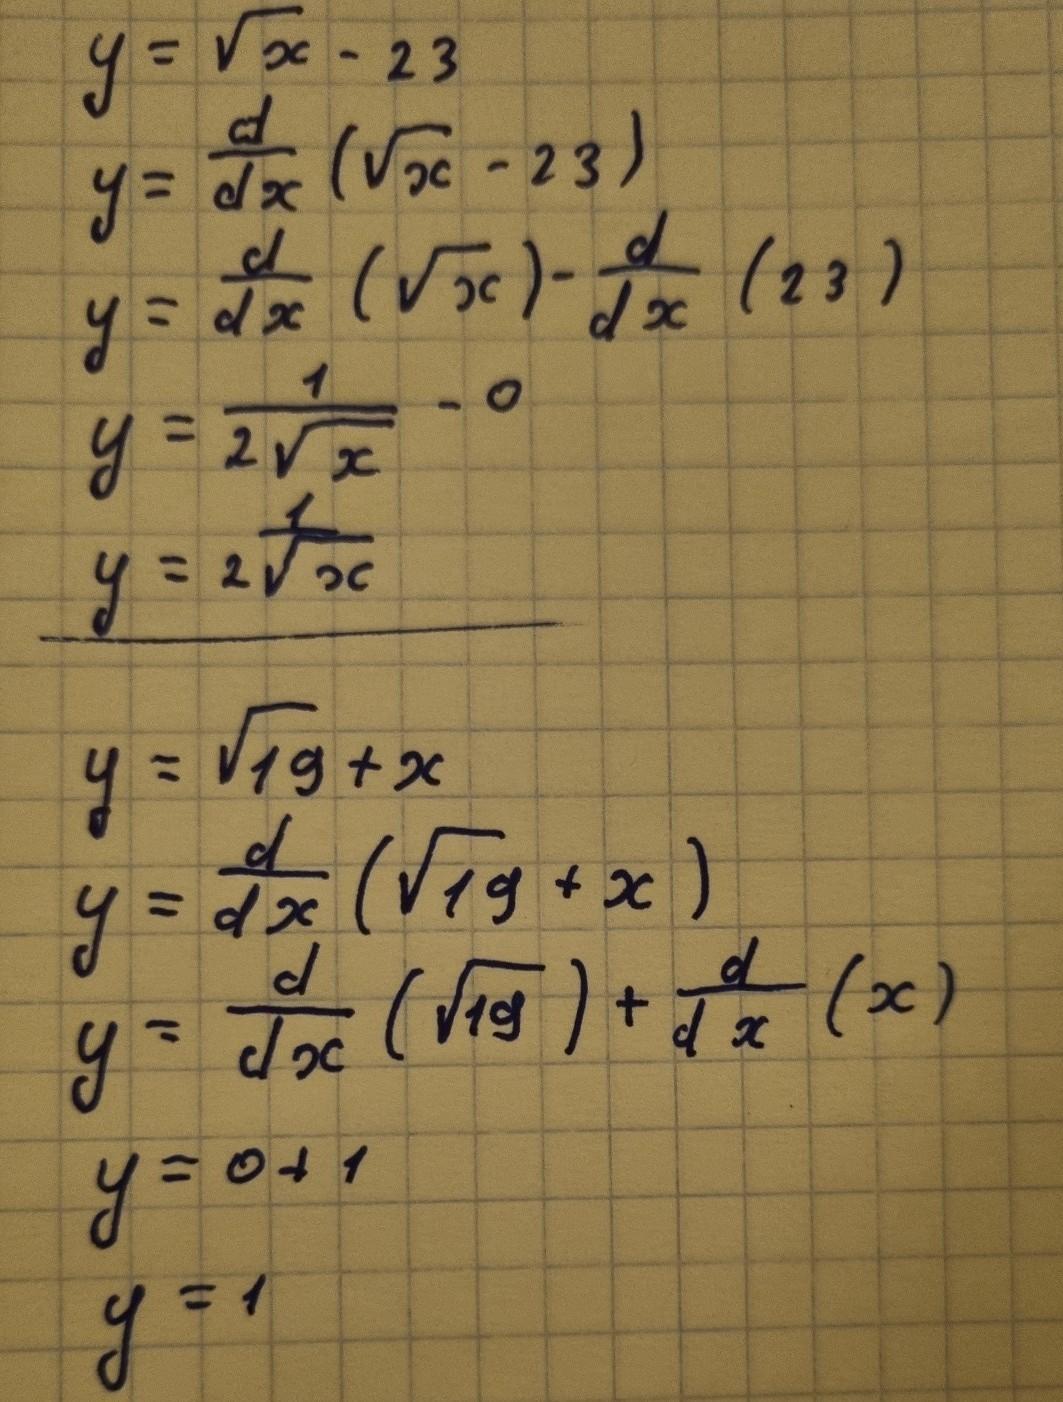 y = √x - 23
y = d/dx (√x - 23)
y = d/dx (√x) - d/dx (23)
y = 1/(2√x) - 0
y = 2 1/√x
y = √19 + x
y = d/dx (√19 + x)
y = d/dx (√19) + d/dx (x)
y = 0 + 1
y = 1